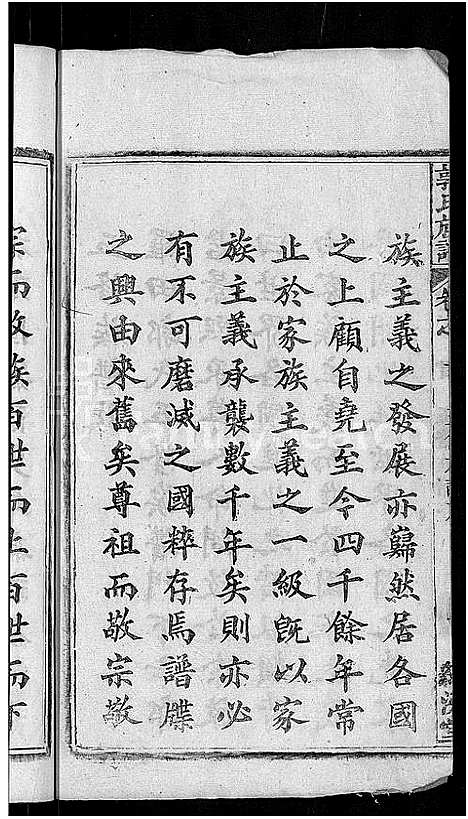 郭氏族譜
卷首
族主義之發展亦巋然居各國
之上顧自堯至今四千餘年常
止於家族主義之一級旣以家
族主義承襲數千年矣則亦必
有不可磨滅之國粹存焉譜牒
之興由來舊矣尊祖而敬宗敬
宗而收族百世而上百世而下